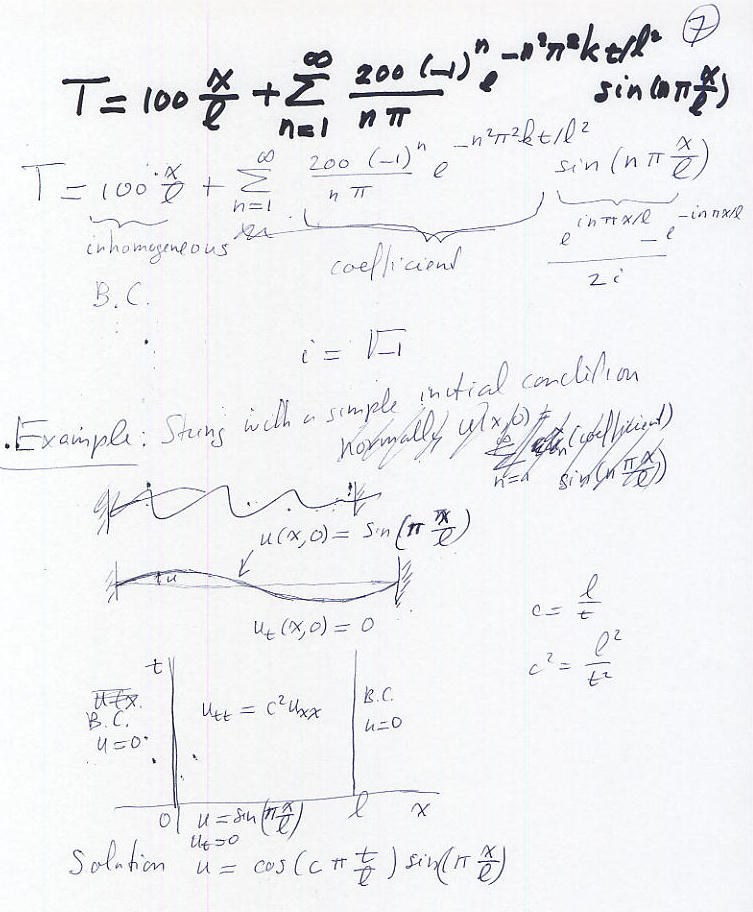 7
T = 100 x/l + Σ_{n=1}^{∞} 200 (-1)^n / nπ e^{-n²π²kt/l²} sin(nπ x/l)
T = 100 x/l + Σ_{n=1}^{∞} 200 (-1)^n / nπ e^{-n²π²kt/l²} sin(nπ x/l)
inhomogeneous
B.C.
coefficient
e^{inπx/l} - e^{-inπx/l} / 2i
i = √-1
Example: String with a simple initial condition
normally u(x,0) =
(coefficient)
n=1 sin(n πx/l)
u(x,0) = sin(π x/l)
u
u_t(x,0) = 0
c = l/t
c² = l²/t²
t
B.C.
u=0
u_tt = c²u_xx
B.C.
u=0
0 l x
u = sin(π x/l)
u_t=0
Solution u = cos(c π t/l) sin(π x/l)